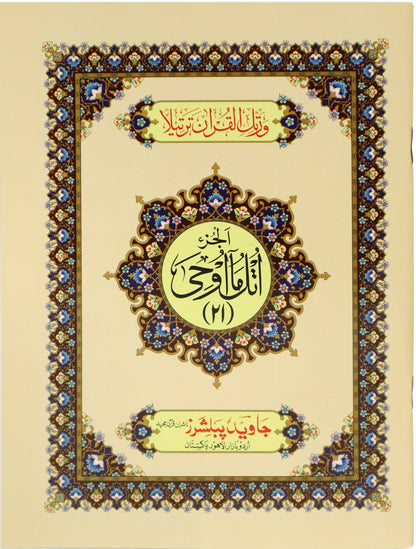 ورتل القرآن ترتيلا
الجزء
اُتْلُ مَآ اُوْحِیَ
(۲۱)
جاوید پبلشرز ناشران قرآن مجید
اردو بازار لاہور پاکستان